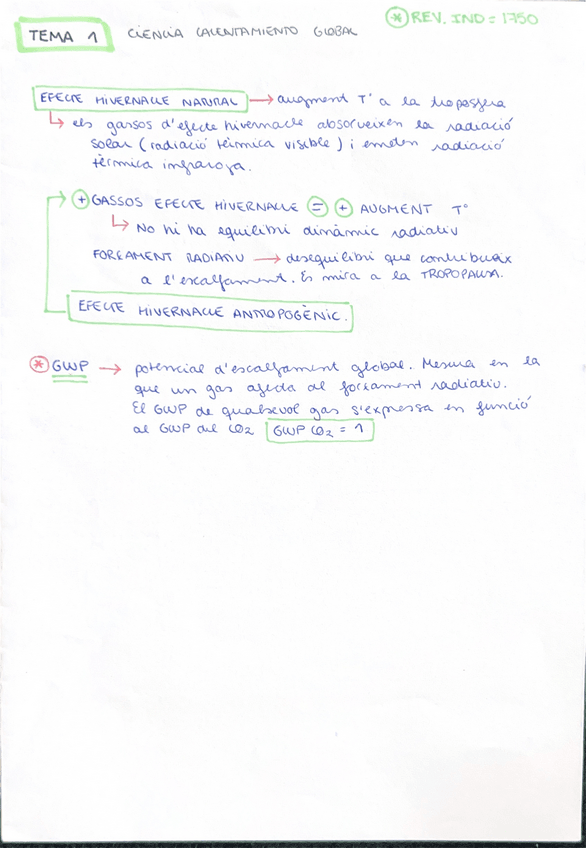 TEMA 1 CIENCIA CALENTAMIENTO GLOBAL
* REV. IND = 1750
EFECTE HIVERNACLE NATURAL → augment Tª a la troposfera
↳ els gassos d'efecte hivernacle absorveixen la radiació
solar (radiació tèrmica visible) i emeten radiació
tèrmica infraroja.
+ GASSOS EFECTE HIVERNACLE = + AUGMENT Tº
↳ No hi ha equilibri dinàmic radiatiu
FORÇAMENT RADIATIU → desequilibri que contribueix
a l'escalfament. Es mira a la TROPOPAUSA.
EFECTE HIVERNACLE ANTROPOGÈNIC.
* GWP → potencial d'escalfament global. Mesura en la
que un gas afecta al forçament radiatiu.
El GWP de qualsevol gas s'expressa en funció
al GWP del CO2 GWP CO2 = 1